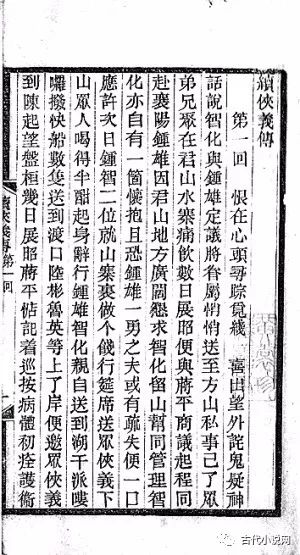 續俠義傳
第一回 恨在心頭尋踪覓綫 喜出望外詫鬼疑神
話說智化與鍾雄定議將眷屬悄悄送至方山私事已了眾
弟兄聚在君山水寨痛飲數日展昭便與蔣平商議起程同
赴襄陽鍾雄因君山地方廣闊懇求智化留山幫同管理智
化亦自有一箇懷抱且恐鍾雄一勇之夫或有疏失便一口
應許次日鍾智二位就山寨裏做个餞行筵席送眾俠義下
山眾人喝得半酣起身辭行鍾雄智化親自送到湖干派嘍
囉撥快船數隻送到渡口陸彬魯英等上了岸便邀眾俠義
到陳起望盤桓幾日展昭蔣平惦記着巡按病體初痊護衛
續俠義傳 第一回
一
古代小说网